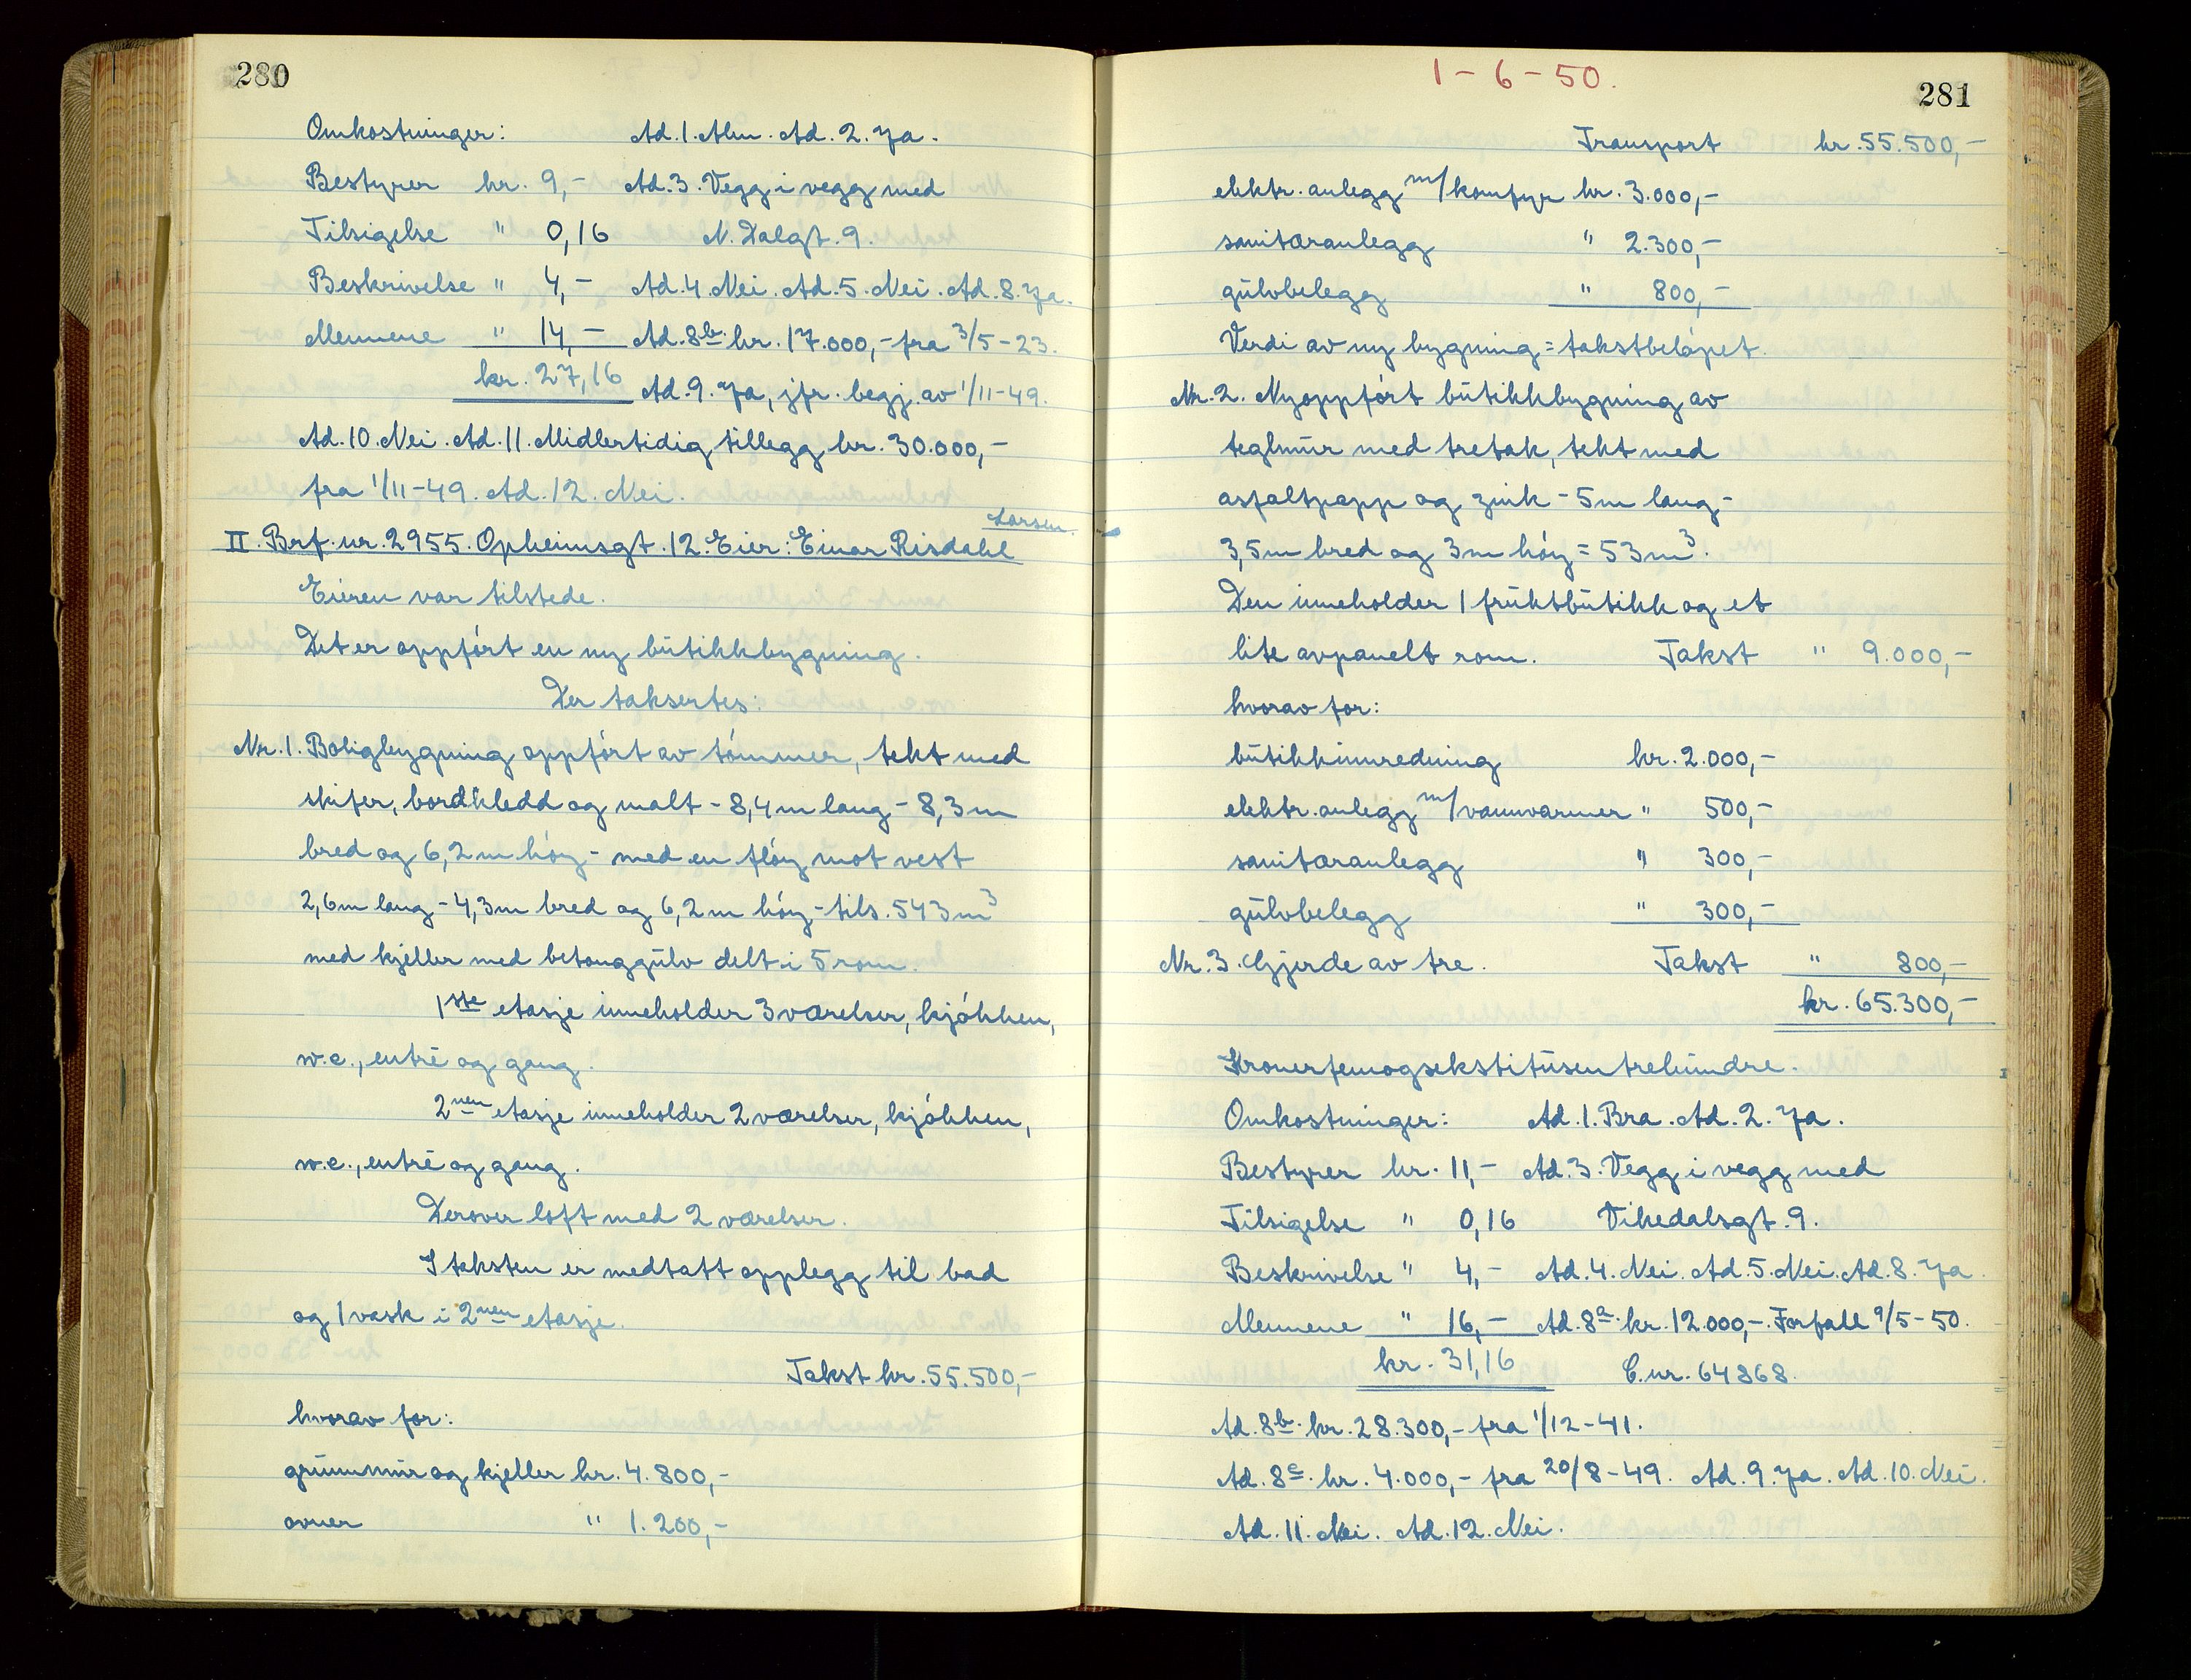 280
Omkostninger: Ad. 1. Alm. Ad. 2. Ja.
Bestyrer kr. 9,- Ad. 3. Vegg i vegg med
Tilsigelse " 0,16 N. Dalgt. 9.
Beskrivelse " 4,- Ad. 4. Nei. Ad. 5. Nei. Ad. 8. Ja.
Mennene " 14,- Ad. 8b. kr. 17.000,- fra 3/5-23.
kr. 27,16 Ad. 9. Ja, jfr. begj. av 1/11-49.
Ad. 10. Nei. Ad. 11. Midlertidig tillegg kr. 30.000,-
fra 1/11-49. Ad. 12. Nei.
Larsen
II. Brf. nr. 2955. Opheimsgt. 12. Eier: Einar Risdahl
Eieren var tilstede.
Det er oppført en ny butikkbygning.
Der taksertes:
Nr. 1. Boligbygning oppført av tømmer, tekt med
skifer, bordkledd og malt - 8,4 m lang - 8,3 m
bred og 6,2 m høy - med en fløy mot vest
2,6 m lang - 4,3 m bred og 6,2 m høy - tils. 543 m³
med kjeller med betonggulv delt i 5 rom.
1ste etasje inneholder 3 værelser, kjøkken,
w.c., entré og gang.
2nen etasje inneholder 2 værelser, kjøkken,
w.c., entré og gang.
Derover loft med 2 værelser.
I taksten er medtatt opplegg til bad
og 1 vask i 2nen etasje.
Takst kr. 55.500,-
hvorav for:
grunnmur og kjeller kr. 4.800,-
ovner " 1.200,-
1-6-50.
281
Transport kr. 55.500,-
elektr. anlegg m/komfyr kr. 3.000,-
sanitæranlegg " 2.300,-
gulvbelegg " 800,-
Verdi av ny bygning = takstbeløpet.
Nr. 2. Nyoppført butikkbygning av
teglmur med tretak, tekt med
asfaltpapp og zink - 5 m lang -
3,5 m bred og 3 m høy = 53 m³.
Den inneholder 1 fruktbutikk og et
lite avpanelt rom. Takst " 9.000,-
hvorav for:
butikkinnredning kr. 2.000,-
elektr. anlegg m/vannvarmer " 500,-
sanitæranlegg " 300,-
gulvbelegg " 300,-
Nr. 3. Gjerde av tre. Takst " 800,-
kr. 65.300,-
Kronerfemogsekstitusentrehundre.
Omkostninger: Ad. 1. Bra. Ad. 2. Ja.
Bestyrer kr. 11,- Ad. 3. Vegg i vegg med
Tilsigelse " 0,16 Vikedalsgt. 9.
Beskrivelse " 4,- Ad. 4. Nei. Ad. 5. Nei. Ad. 8. Ja.
Mennene " 16,- Ad. 8a. kr. 12.000,-. Forfall 9/5-50.
kr. 31,16 C. nr. 64868.
Ad. 8b. kr. 28.300,- fra 1/12-41.
Ad. 8c. kr. 4.000,- fra 20/8-49. Ad. 9. Ja. Ad. 10. Nei.
Ad. 11. Nei. Ad. 12. Nei.